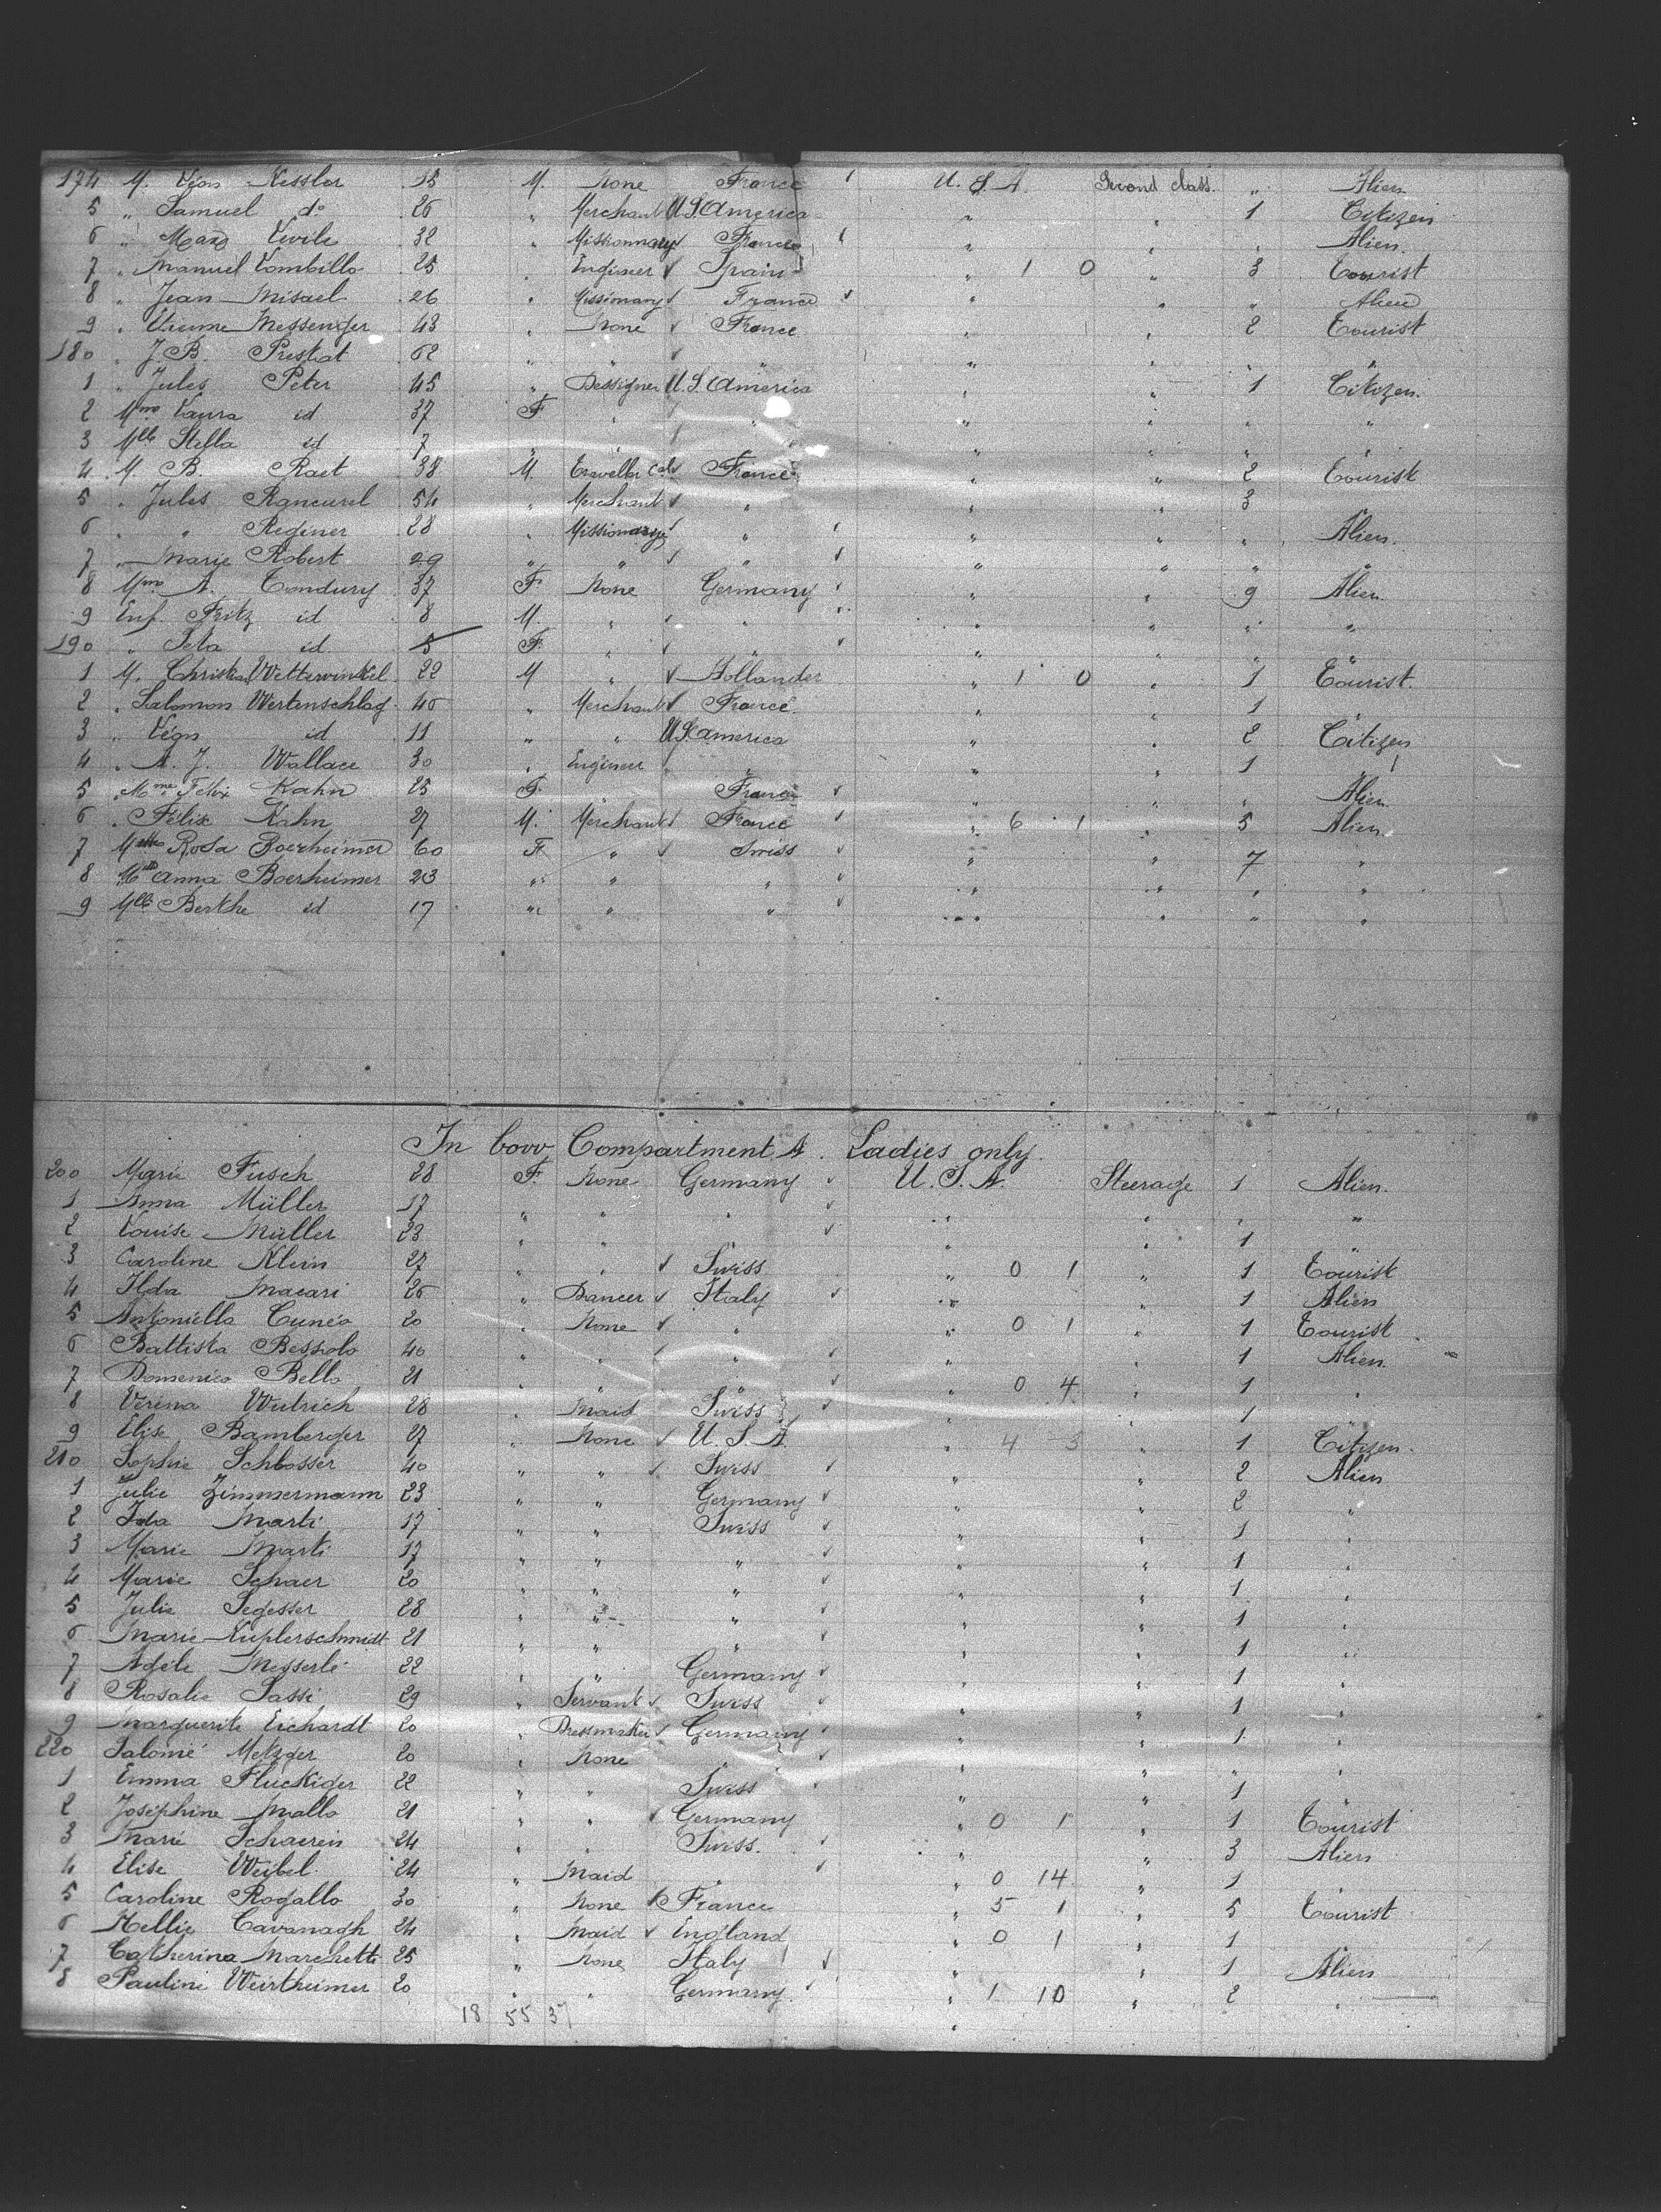 174 M. Léon Kessler 15 M. None France U.S.A. Second class. " Alien
5 " Samuel do 26 " Merchant U.S. America " " 1 Citizen
6 " Marc 32 " Missionnary France " " " Alien.
7 " Manuel Lombillo 25 " Engineer Spain " 1 0 " 3 Tourist
8 " Jean Misael 26 " Missionary France " " " Alien
9 " Etienne Messenger 43 " None France " " 2 Tourist
180 " J.B. Prestat 62 " " " " " " "
1 " Jules Peter 45 " Dessigner U.S. America " " 1 Citizen.
2 Mme Laura id 37 F " " " " " "
3 Mlle Stella id 7 " " " " " " "
4 M. B. Raet 38 M. France " " 2 Tourist
5 " Jules Rancurel 54 " Merchant " " " 3
6 " " Reginer 28 " Missionary " " " " Alien.
7 " Marie Robert 29 " " " " " " "
8 Mme A. Tondury 37 F. None Germany " " 9 Alien
9 Enf. Fritz id 8 M. " " " " " "
190 " id 5 F. " " " " " "
1 M. Christian Wetterwinkel 22 M " Hollander " 1 0 " 1 Tourist.
2 " Salomon Wertenschlag 40 " Merchant France. " " 1 "
3 " Léon id 11 " " U.S. America " " 2 Citizen
4 " A. J. Wallace 30 " Engineer " " " 1 "
5 Mme Félix Kahn 25 F. France " " " Alien
6 " Félix Kahn 27 M. Merchant France " 6 1 " 5 Alien.
7 Rosa Boerheimer 60 F. " Swiss " " 7 "
8 Mlle Anna Boerheimer 23 " " " " " " "
9 Mlle Berthe id 17 " " " " " " "
In bow, Compartment A. Ladies only.
200 Marie Fusch 28 F. None Germany U.S.A. Steerage 1 Alien.
1 Anna Müller 17 " " " " " " "
2 Louise Müller 23 " " " " " 1 "
3 Caroline Klein 27 " " Swiss " 0 1 " 1 Tourist
4 Ilda Macari 26 " Dancer Italy " " 1 Alien
5 Antoniella Cunéo 20 " None " " 0 1 " 1 Tourist
6 Battista Bessolo 40 " " " " " 1 Alien.
7 Domenico Bello 21 " " " " 0 4 " 1 "
8 Vérena Wutrich 28 " Maid Swiss " " 1 "
9 Elise Bamberger 27 " None U.S.A. " 4 3 " 1 Citizen.
210 Sophie Schlosser 40 " " Swiss " " 2 Alien
1 Julie Zimmermann 23 " " Germany " " 2 "
2 Ida Marti 17 " " Swiss " " 1 "
3 Marie Marti 17 " " " " " 1 "
4 Marie Schaer 20 " " " " " 1 "
5 Julie Segesser 28 " " " " " 1 "
6 Marie Kuplerschmidt 21 " " " " " 1 "
7 Adèle Messerle 22 " " Germany " " 1 "
8 Rosalie Sassi 29 " Servant Swiss " " 1 "
9 Marguerite Eichardt 20 " Dressmaker Germany " " 1 "
220 Salomé Metzger 20 " None " " " " "
1 Emma Fluckiger 22 " " Swiss " " 1 "
2 Joséphine Mallo 21 " " Germany " 0 1 " 1 Tourist
3 Marie Schaerein 24 " " Swiss. " " 3 Alien
4 Elise Weibel 24 " Maid " " 0 14 " 1 "
5 Caroline Rogallo 30 " None France " 5 1 " 5 Tourist
6 Nellie Cavanagh 24 " Maid England " 0 1 " 1 "
7 Catherina Marchetti 25 " None Italy " " 1 Alien
8 Pauline Weirtheimer 20 " " Germany. " 1 10 " 2 "
18 55 37